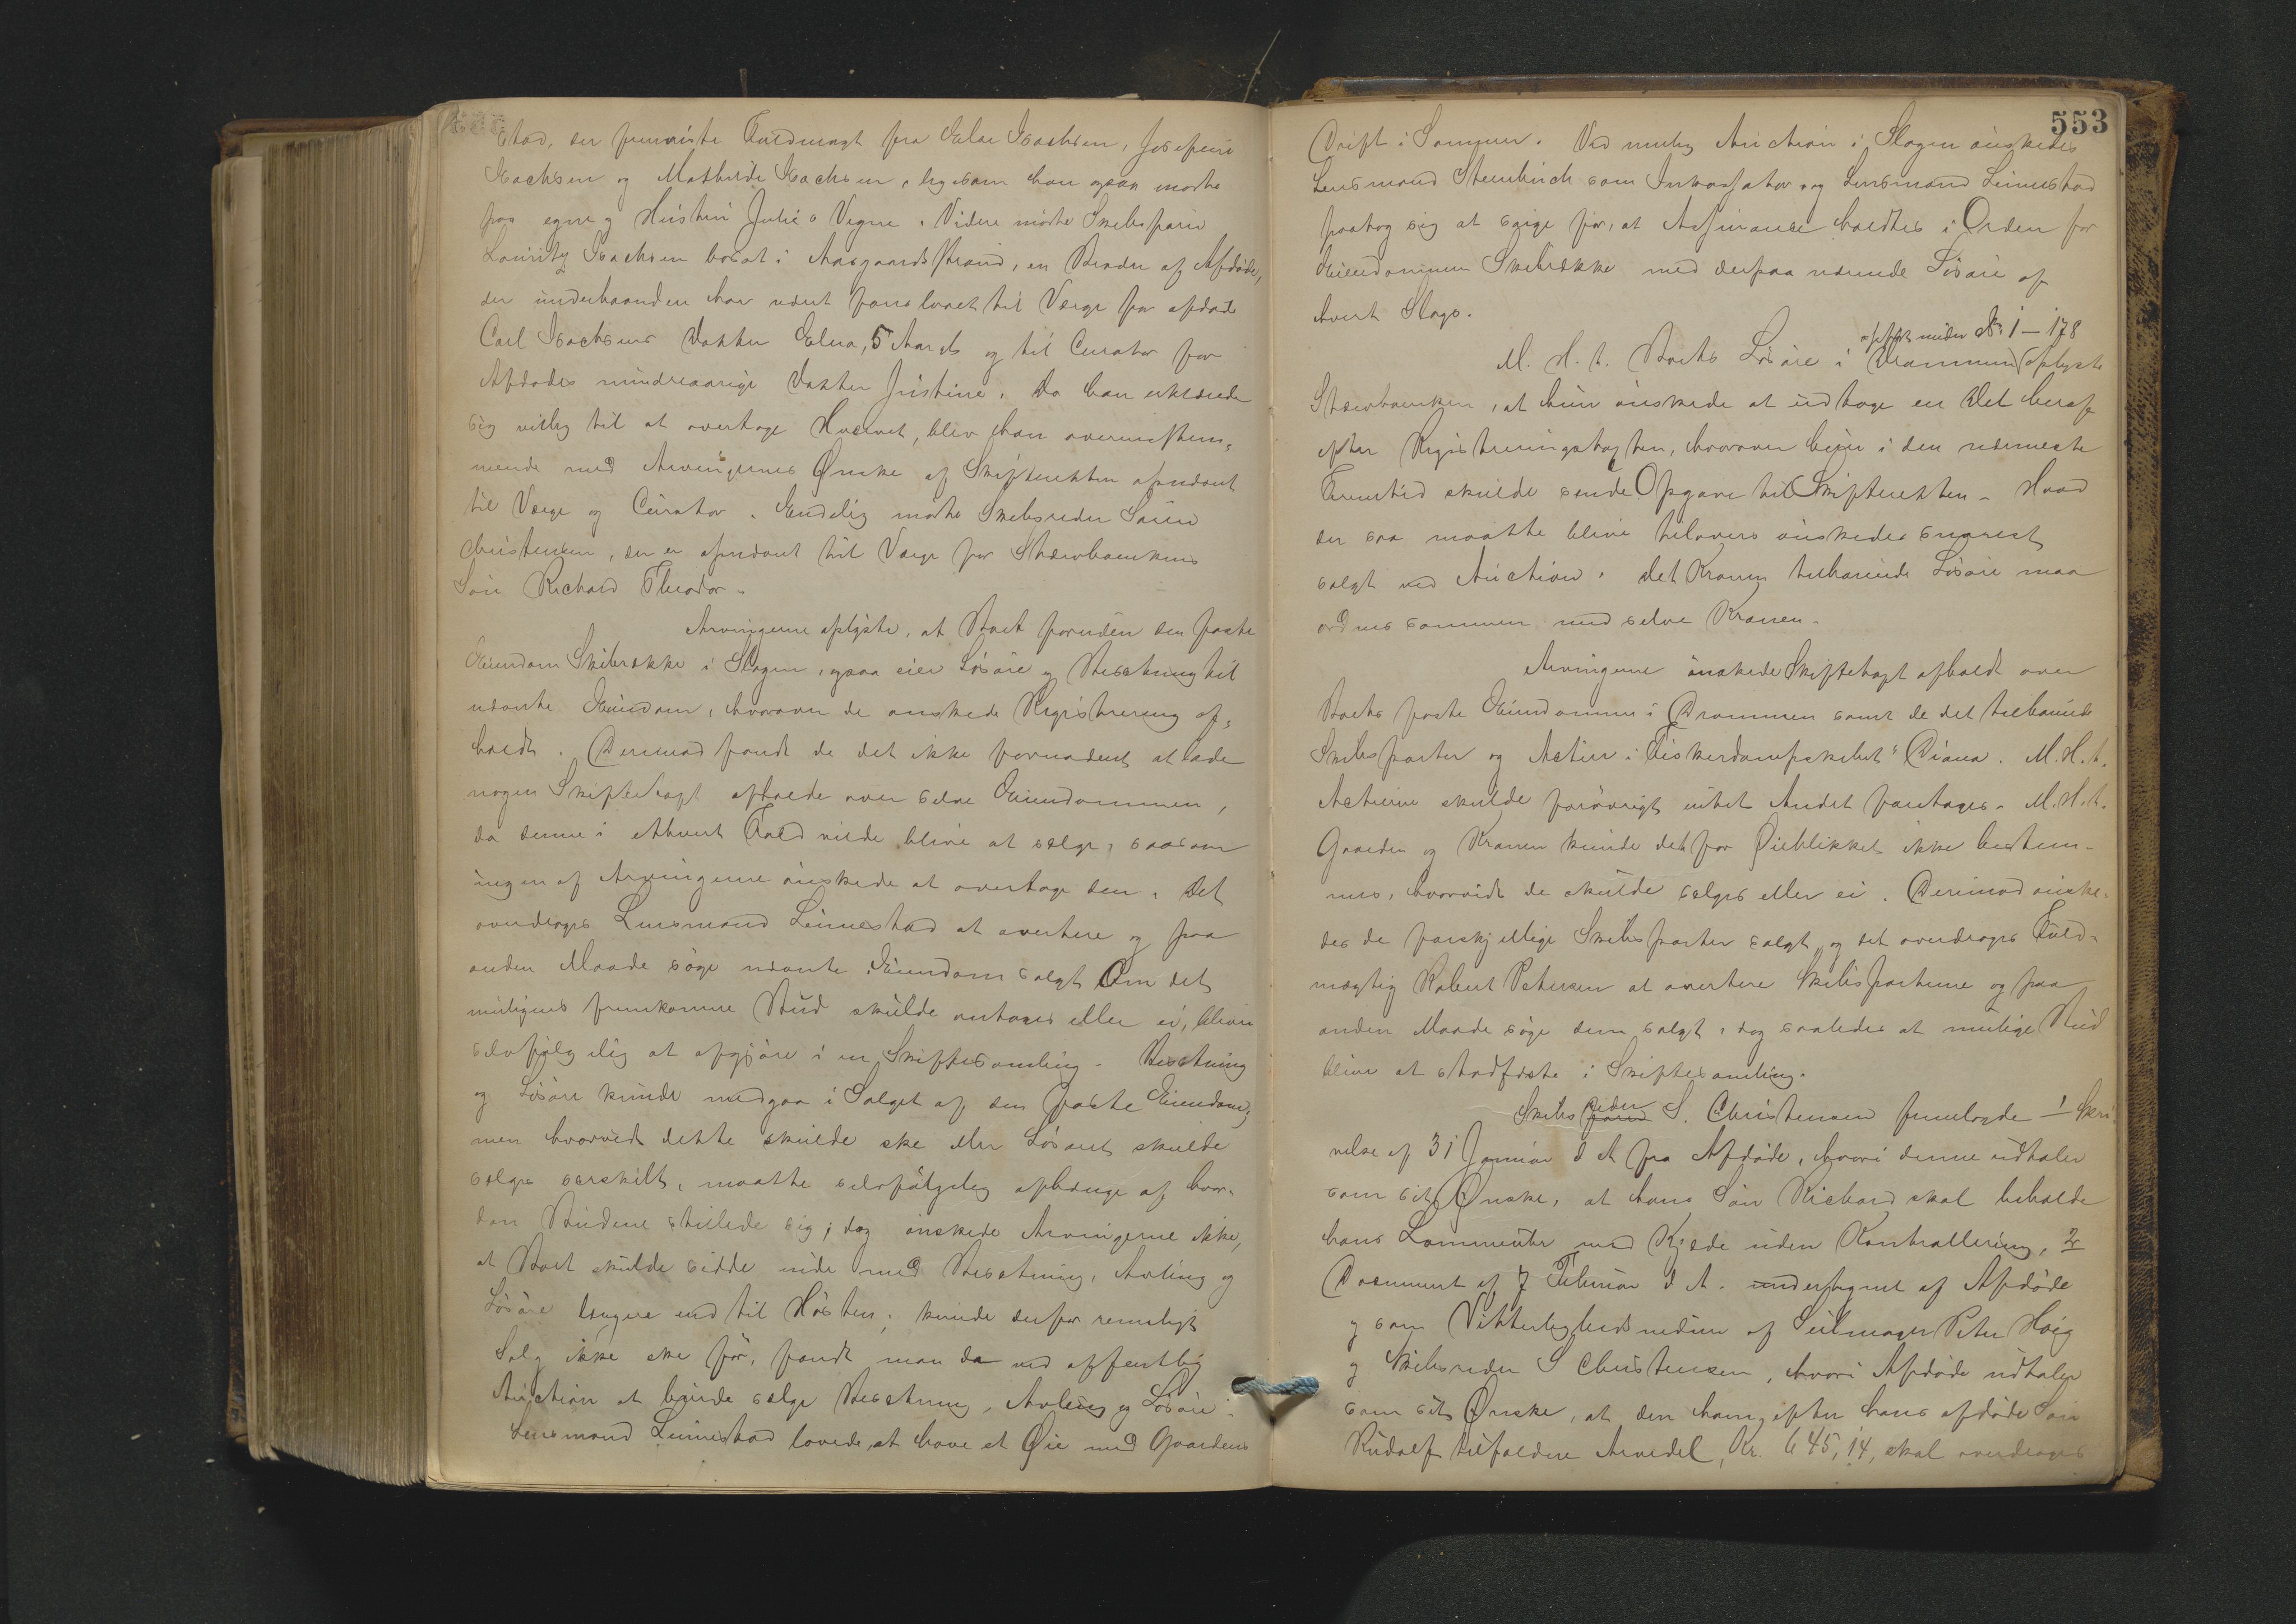 stad, der fremviste Fuldmagt fra Elae Isachsen, Josefine
Isachsen og Mathilde Isachsen, ligesom han ogsaa mødte
paa egne og Hustru Julie's Vegne. Videre mødte Skibsfører
Lauritz Isachsen bosat i Aasgaardstrand, en Broder af Afdøde,
der underhaanden har været foreslaaet til Værge for afdøde
Carl Isachsens Datter Elna, 5 Aar gl. og til Curator for
Afdødes mindreaarige Datter Justine. Da han erklærede
sig villig til at overtage Hvervet, blev han overensstem-
mende med Arvingernes Ønske af Skifteretten opnævnt
til Værge og Curator. Endelig mødte Skibsreder Søren
Christensen, der er opnævnt til Værge for Stervboenkens
Søn Richard Theodor.
Arvingerne oplyste, at Boet foruden den faste
Eiendom Skibrække i Slagen, ogsaa eier Løsøre og Besætning til
nævnte Eiendom, hvorover de ønskede Registrering af-
holdt. Derimod fandt de det ikke fornødent at lade
nogen Skiftetaxt afholde over selve Eiendommen,
da denne i ethvert Fald vilde blive at sælge, saasom
ingen af Arvingerne ønskede at overtage den. Det
overdroges Lensmand Linnestad at avertere og paa
anden Maade søge nævnte Eiendom solgt. Om det
muligens fremkomne Bud skulde antages eller ei, bliver
selvfølgelig at afgjøre i en Skiftesamling. Besætning
og Løsøre kunde medgaa i Salget af den faste Eiendom,
men hvorvidt dette skulde ske eller Løsøret skulde
sælges særskilt, maatte selvfølgelig afhænge af hvor-
dan Budene stillede sig; dog ønskede Arvingerne ikke,
at Boet skulde sidde inde med Besætning, Avling og
Løsøre længere end til Høsten; kunde derfor rimeligt
Salg ikke ske før, fandt man da ved offentlig
Auction at burde sælge Besætning, Avling og Løsøre.
Lensmand Linnestad lovede, at have et Øie med Gaardens
553
Drift i Sommer. Ved mulig Auction i Slagen ønskedes
Lensmand Steenbuch som Inkassator, og Lensmand Linnestad
paatog sig at sørge for, at Assurance holdtes i Orden for
Eiendommen Skibrække med derpaa værende Løsøre af
hvert Slags.
opført under No 1 – 178
M. H. t. Boets Løsøre i Drammen oplyste
Stervboenken, at hun ønskede at udtage en Del heraf
efter Registreringstaxten, hvorover hun i den nærmeste
Fremtid skulde sende Opgave til Skifteretten. Hvad
der saa maatte blive tilovers ønskedes snarest
solgt ved Auction. Det Kranen tilhørende Løsøre maa
ordnes sammen med selve Kranen.
Arvingerne ønskede Skiftetaxt afholdt over
Boets faste Eiendomme i Drammen samt de det tilhørende
Skibsparter og Actier i Fiskerdampskibet "Diana. M. H. t.
Actierne skulde forøvrigt intet Andet foretages. M. H. t.
Gaarden og Kranen kunde det for Øieblikket ikke bestem-
mes, hvorvidt de skulde sælges eller ei. Derimod ønske-
des de forskjellige Skibsparter solgt, og det overdroges Fuld-
mægtig Robert Petersen at avertere Skibsparterne og paa
anden Maade søge dem solgt, dog saaledes at mulige Bud
bliver at stadfæste i Skiftesamling.
reder
Skibsfører S. Christensen fremlagde 1 Skri-
velse af 31 Januar d A fra Afdøde, hvori denne udtaler
som sit Ønske, at hans Søn Richard skal beholde
hans Lommeuhr med Kjæde uden Kontrollering, 2
Document af 7 Februar d A. undertegnet af Afdøde
og som Vitterlighedsvidner af Seilmager Peter Høeg
og Skibsreder S Christensen, hvori Afdøde udtaler
som sit Ønske, at den ham efter hans afdøde Søn
Rudolf tilfaldne Arvedel, Kr. 645,14, skal overdrages